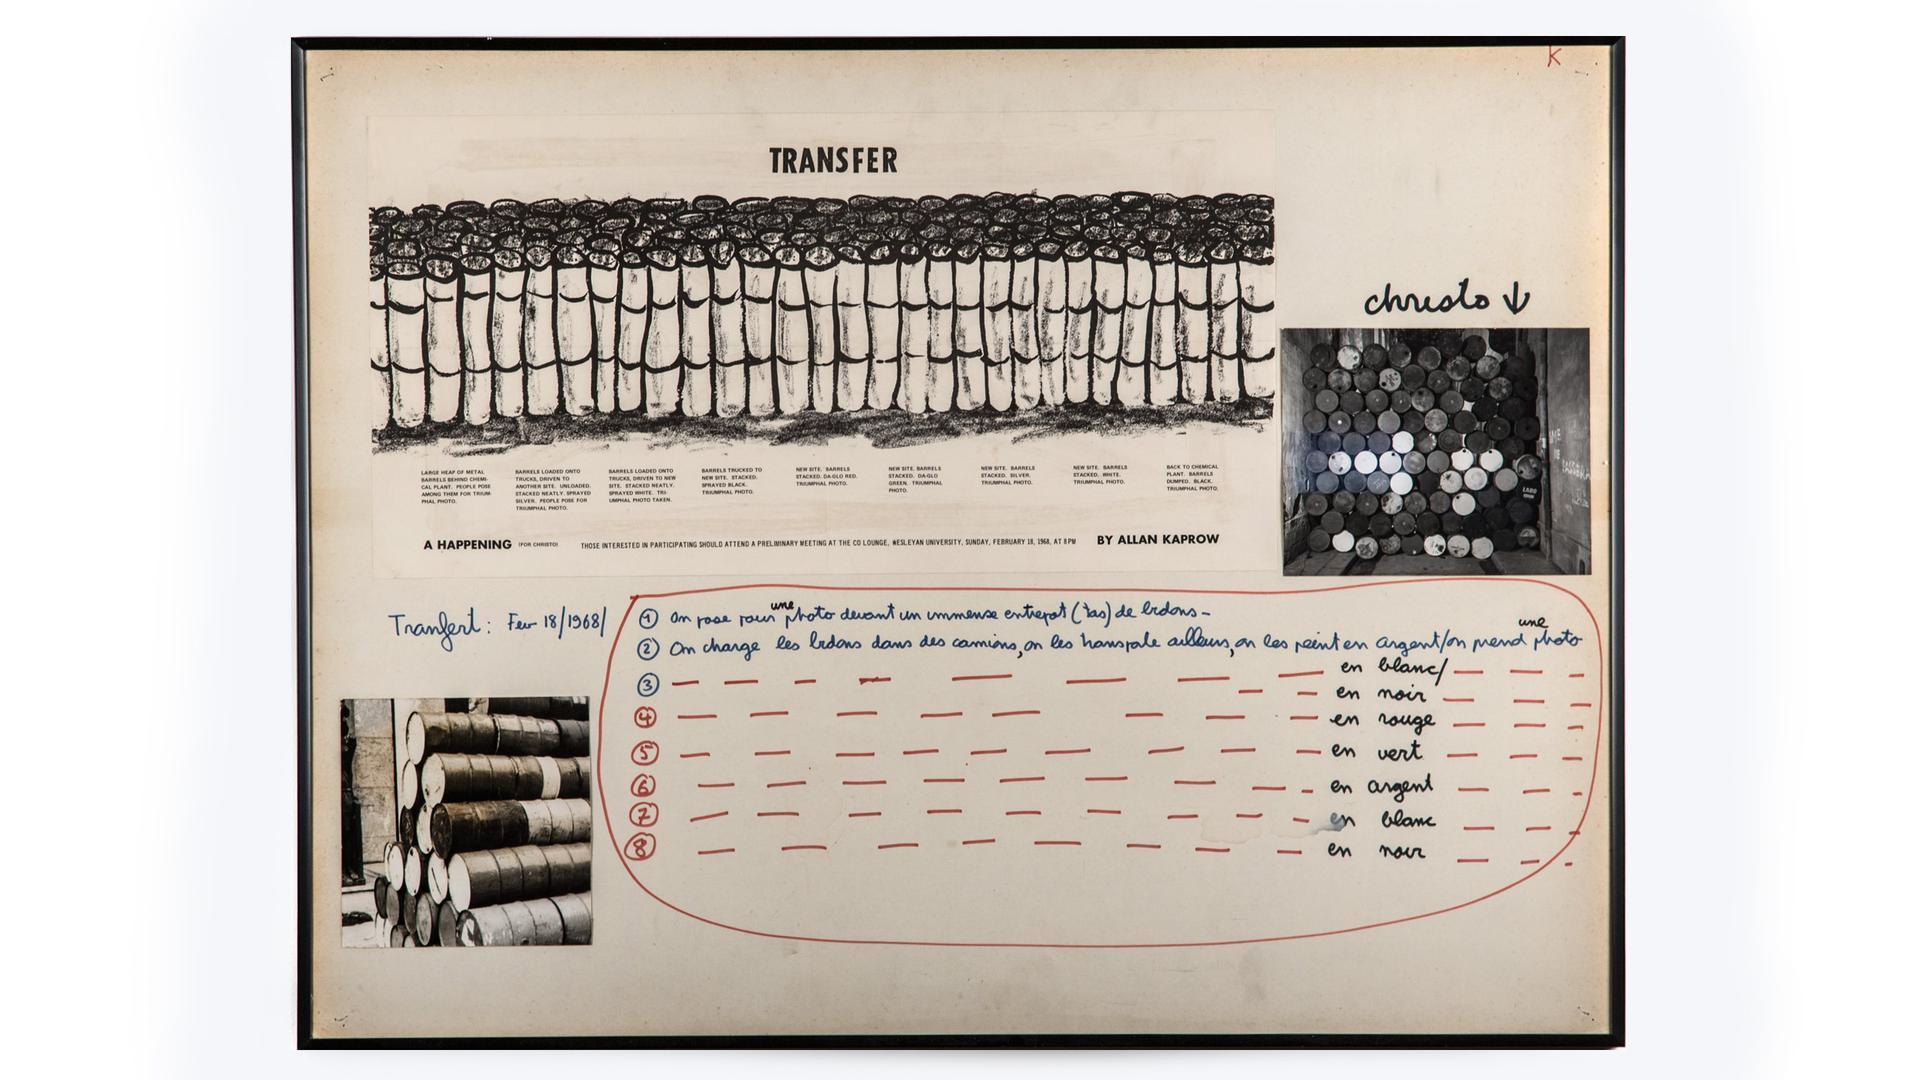 K
TRANSFER
christo ↓
LARGE HEAP OF METAL
BARRELS BEHIND CHEMI-
CAL PLANT. PEOPLE POSE
AMONG THEM FOR TRIUM-
PHAL PHOTO.
BARRELS LOADED ONTO
TRUCKS, DRIVEN TO
ANOTHER SITE. UNLOADED.
STACKED NEATLY. SPRAYED
SILVER. PEOPLE POSE FOR
TRIUMPHAL PHOTO.
BARRELS LOADED ONTO
TRUCKS, DRIVEN TO NEW
SITE. STACKED NEATLY.
SPRAYED WHITE. TRI-
UMPHAL PHOTO TAKEN.
BARRELS TRUCKED TO
NEW SITE. STACKED.
SPRAYED BLACK.
TRIUMPHAL PHOTO.
NEW SITE. BARRELS
STACKED. DA-GLO RED.
TRIUMPHAL PHOTO.
NEW SITE. BARRELS
STACKED. DA-GLO
GREEN. TRIUMPHAL
PHOTO.
NEW SITE. BARRELS
STACKED. SILVER.
TRIUMPHAL PHOTO.
NEW SITE. BARRELS
STACKED. WHITE.
TRIUMPHAL PHOTO.
BACK TO CHEMICAL
PLANT. BARRELS
DUMPED. BLACK.
TRIUMPHAL PHOTO.
LABO
A HAPPENING (FOR CHRISTO) THOSE INTERESTED IN PARTICIPATING SHOULD ATTEND A PRELIMINARY MEETING AT THE CO LOUNGE, WESLEYAN UNIVERSITY, SUNDAY, FEBRUARY 18, 1968, AT 8 PM BY ALLAN KAPROW
Tranfert: Fev 18/1968/
① On pose pour une photo devant un immense entrepot (tas) de bidons-
② On charge les bidons dans des camions, on les transporte ailleurs, on les peint en argent/on prend une photo
③ en blanc/
en noir
④ en rouge
⑤ en vert
⑥ en argent
⑦ en blanc
⑧ en noir